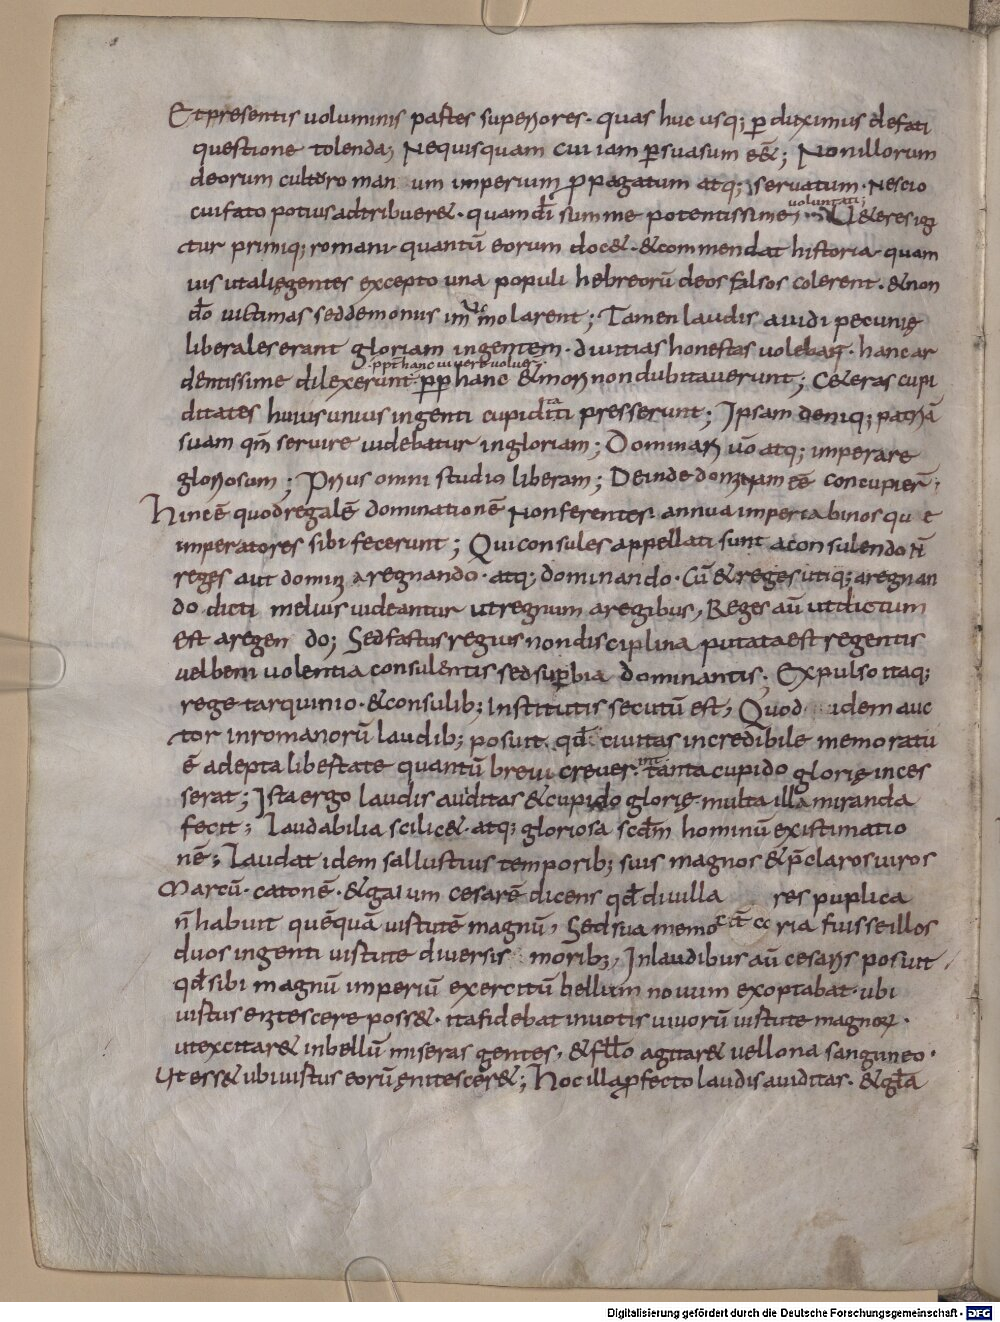 Et presentis uoluminis partes superiores. quas huc usq; pdiximus de fati
questione tolenda; Nequisquam cui iam psuasum eē; Non illorum
deorum cultu ro man um imperium ppagatum atq; seruatum. Nescio
cui fato potius adtribueret. quam dī summe potentissime uoluntati; Ueteres igi
tur primiq; romani. quantū eorum docet. & commendat historia. quam
uis ut alię gentes excepto una populi hebreorū deos falsos colerent. & non
dō uictimas sed demonus immolarent; Tamen laudis auidi pecunię
liberales erant gloriam ingentem. diuitias honestas uolebant. hanc ar
ppt hanc uiuere uoluer
dentissime dilexerunt. pp hanc & mori non dubitauerunt; Ceteras cupi
ditates huius unius ingenti cupiditati presserunt; Ipsam deniq; patriā
suam qm̄ seruire uidebatur ingloriam; Dominari ūo atq; imperare
gloriosum; Prius omni studio liberam; Deinde dominam eē concupier̄;
Hinc ē quod regalē dominationē Non ferentes. annua imperia binosqu e
imperatores sibi fecerunt; Qui consules appellati sunt a consulendo N̄
reges aut domini a regnando. atq; dominando. Cū & reges utiq; a regnan
do dicti melius uideantur ut regnum a regibus, Reges aū ut dictum
est a regen do; Sed fastus regius non disciplina putata est regentis
uel beniuolentia consulentis sed supbia dominantis. Expulso itaq;
rege tarquinio. & consulib; institutis secutū est, Quod idem auc
tor in romanorū laudib; posuit. qd ciuitas incredibile memoratu
ē adepta libertate quantū breui creuer. int tanta cupido glorię inces
serat; Ista ergo laudis auiditas & cupido glorię. multa illa miranda
fecit; Laudabilia scilicet. atq; gloriosa scdm hominū existimatio
nē; Laudat idem sallustius temporib; suis magnos & p̄claros uiros
Marcū. catonē. & gaium cesarē dicens qd diu illa res puplica
n̄ habuit quēquā uirtutē magnū, Sed sua memo ria fuisse illos
duos ingenti uirtute diuersis moribz, In laudibus aū cesaris posuit
qd sibi magnū imperiū exercitū bellum nouum exoptabat. ubi
uirtus enitescere posset. ita fidebat in uotis uiuorū uirtute magnoꝝ.
ut excitaret in bellū miseras gentes, & fllo agitaret uellona sanguneo.
Ut esset ubi uirtus eorū ęnitesceret; Hoc illa pfecto laudis auiditas. & gla
Digitalisierung gefördert durch die Deutsche Forschungsgemeinschaft - DFG